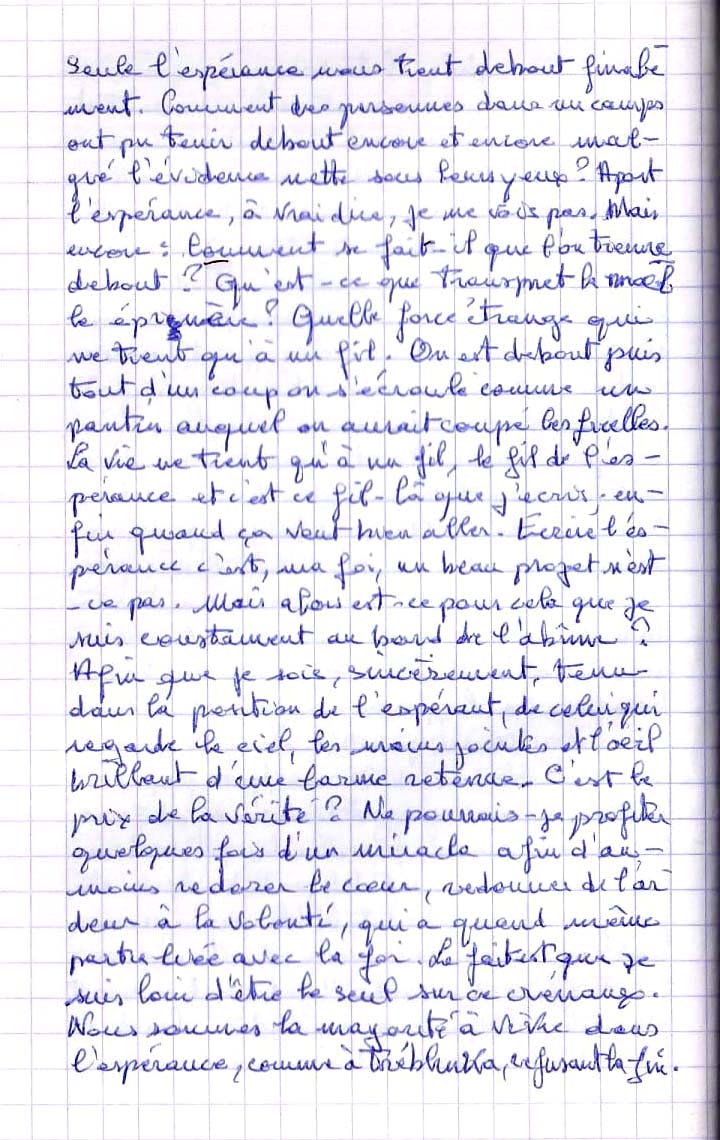 Seule l'espérance nous tient debout finale
ment. Comment des personnes dans un camps
ont pu tenir debout encore et encore mal-
gré l'évidence nette sous leurs yeux? Apart
l'espérance, à vrai dire, je ne vois pas. Mais
encore : Comment se fait-il que l'on tienne
debout ? Qu'est-ce que transmet la moel
le épinière ? Quelle force étrange qui
ne tient qu'à un fil. On est debout puis
tout d'un coup on s'écroule comme un
pantin auquel on aurait coupé les ficelles.
La vie ne tient qu'à un fil, le fil de l'es-
pérance et c'est ce fil-là que j'écris, en-
fin quand ça veut bien aller. Ecrire l'es-
pérance c'est, ma foi, un beau projet n'est
-ce pas. Mais alors est-ce pour cela que je
suis constament au bord de l'abîme ?
Afin que je sois, sincèrement, tenu
dans la position de l'espérant, de celui qui
regarde le ciel, les mains jointes et l'oeil
brillant d'une larme retenue. C'est le
prix de la vérité ? Ne pourrais-je profiter
quelques fois d'un miracle afin d'au-
moins redorer le coeur, redonner de l'ar
deur à la volonté, qui a quand même
partie liée avec la foi. Le fait est que je
suis loin d'être le seul sur ce créneau.
Nous sommes la majorité à vivre dans
l'espérance, comme à Tréblinka, refusant la fin.